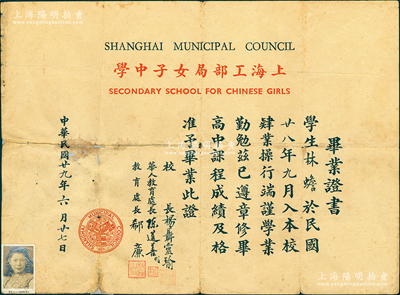 上海陽明拍賣
SHANGHAI MUNICIPAL COUNCIL
學中子女局部工海上
SECONDARY SCHOOL FOR CHINESE GIRLS
畢業證書
學生林蟾於民國
廿八年九月入本校
肄業操行端謹學業
勤勉茲已遵章修畢
高中課程成績及格
准予畢業此證
校長楊聶靈瑜
華人教育處長陳選善
教育處長郝廉
中華民國廿九年六月廿七日
上海陽明拍賣